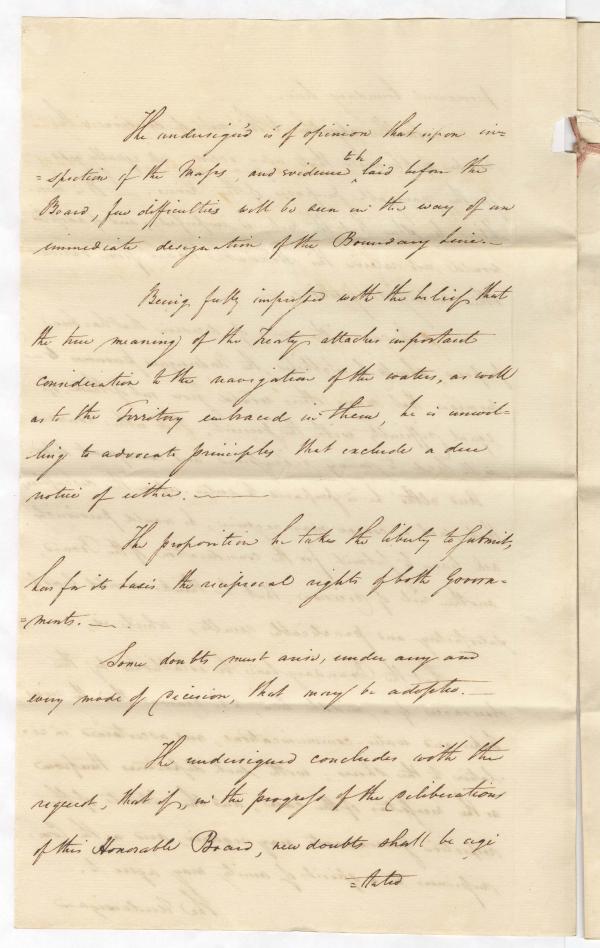 The undersign'd is of opinion that upon in=
=spection of the Maps, and evidence th laid before the
Board, few difficulties will be seen in the way of an
immediate designation of the Boundary Line.—
Being fully impressed with the belief that
the true meaning of the Treaty attaches important
consideration to the navigation of the waters, as well
as to the Territory embraced in them, he is unwil=
ling to advocate principles that exclude a due
notice of either.—
The proposition he takes the liberty to submit,
has for its basis the reciprocal rights of both Govern=
=ments.—
Some doubts must arise, under any and
every mode of decision, that may be adopted.—
The undersigned concludes with the
request, that if, in the progress of the deliberations
of this Honorable Board, new doubts shall be agi
=tated